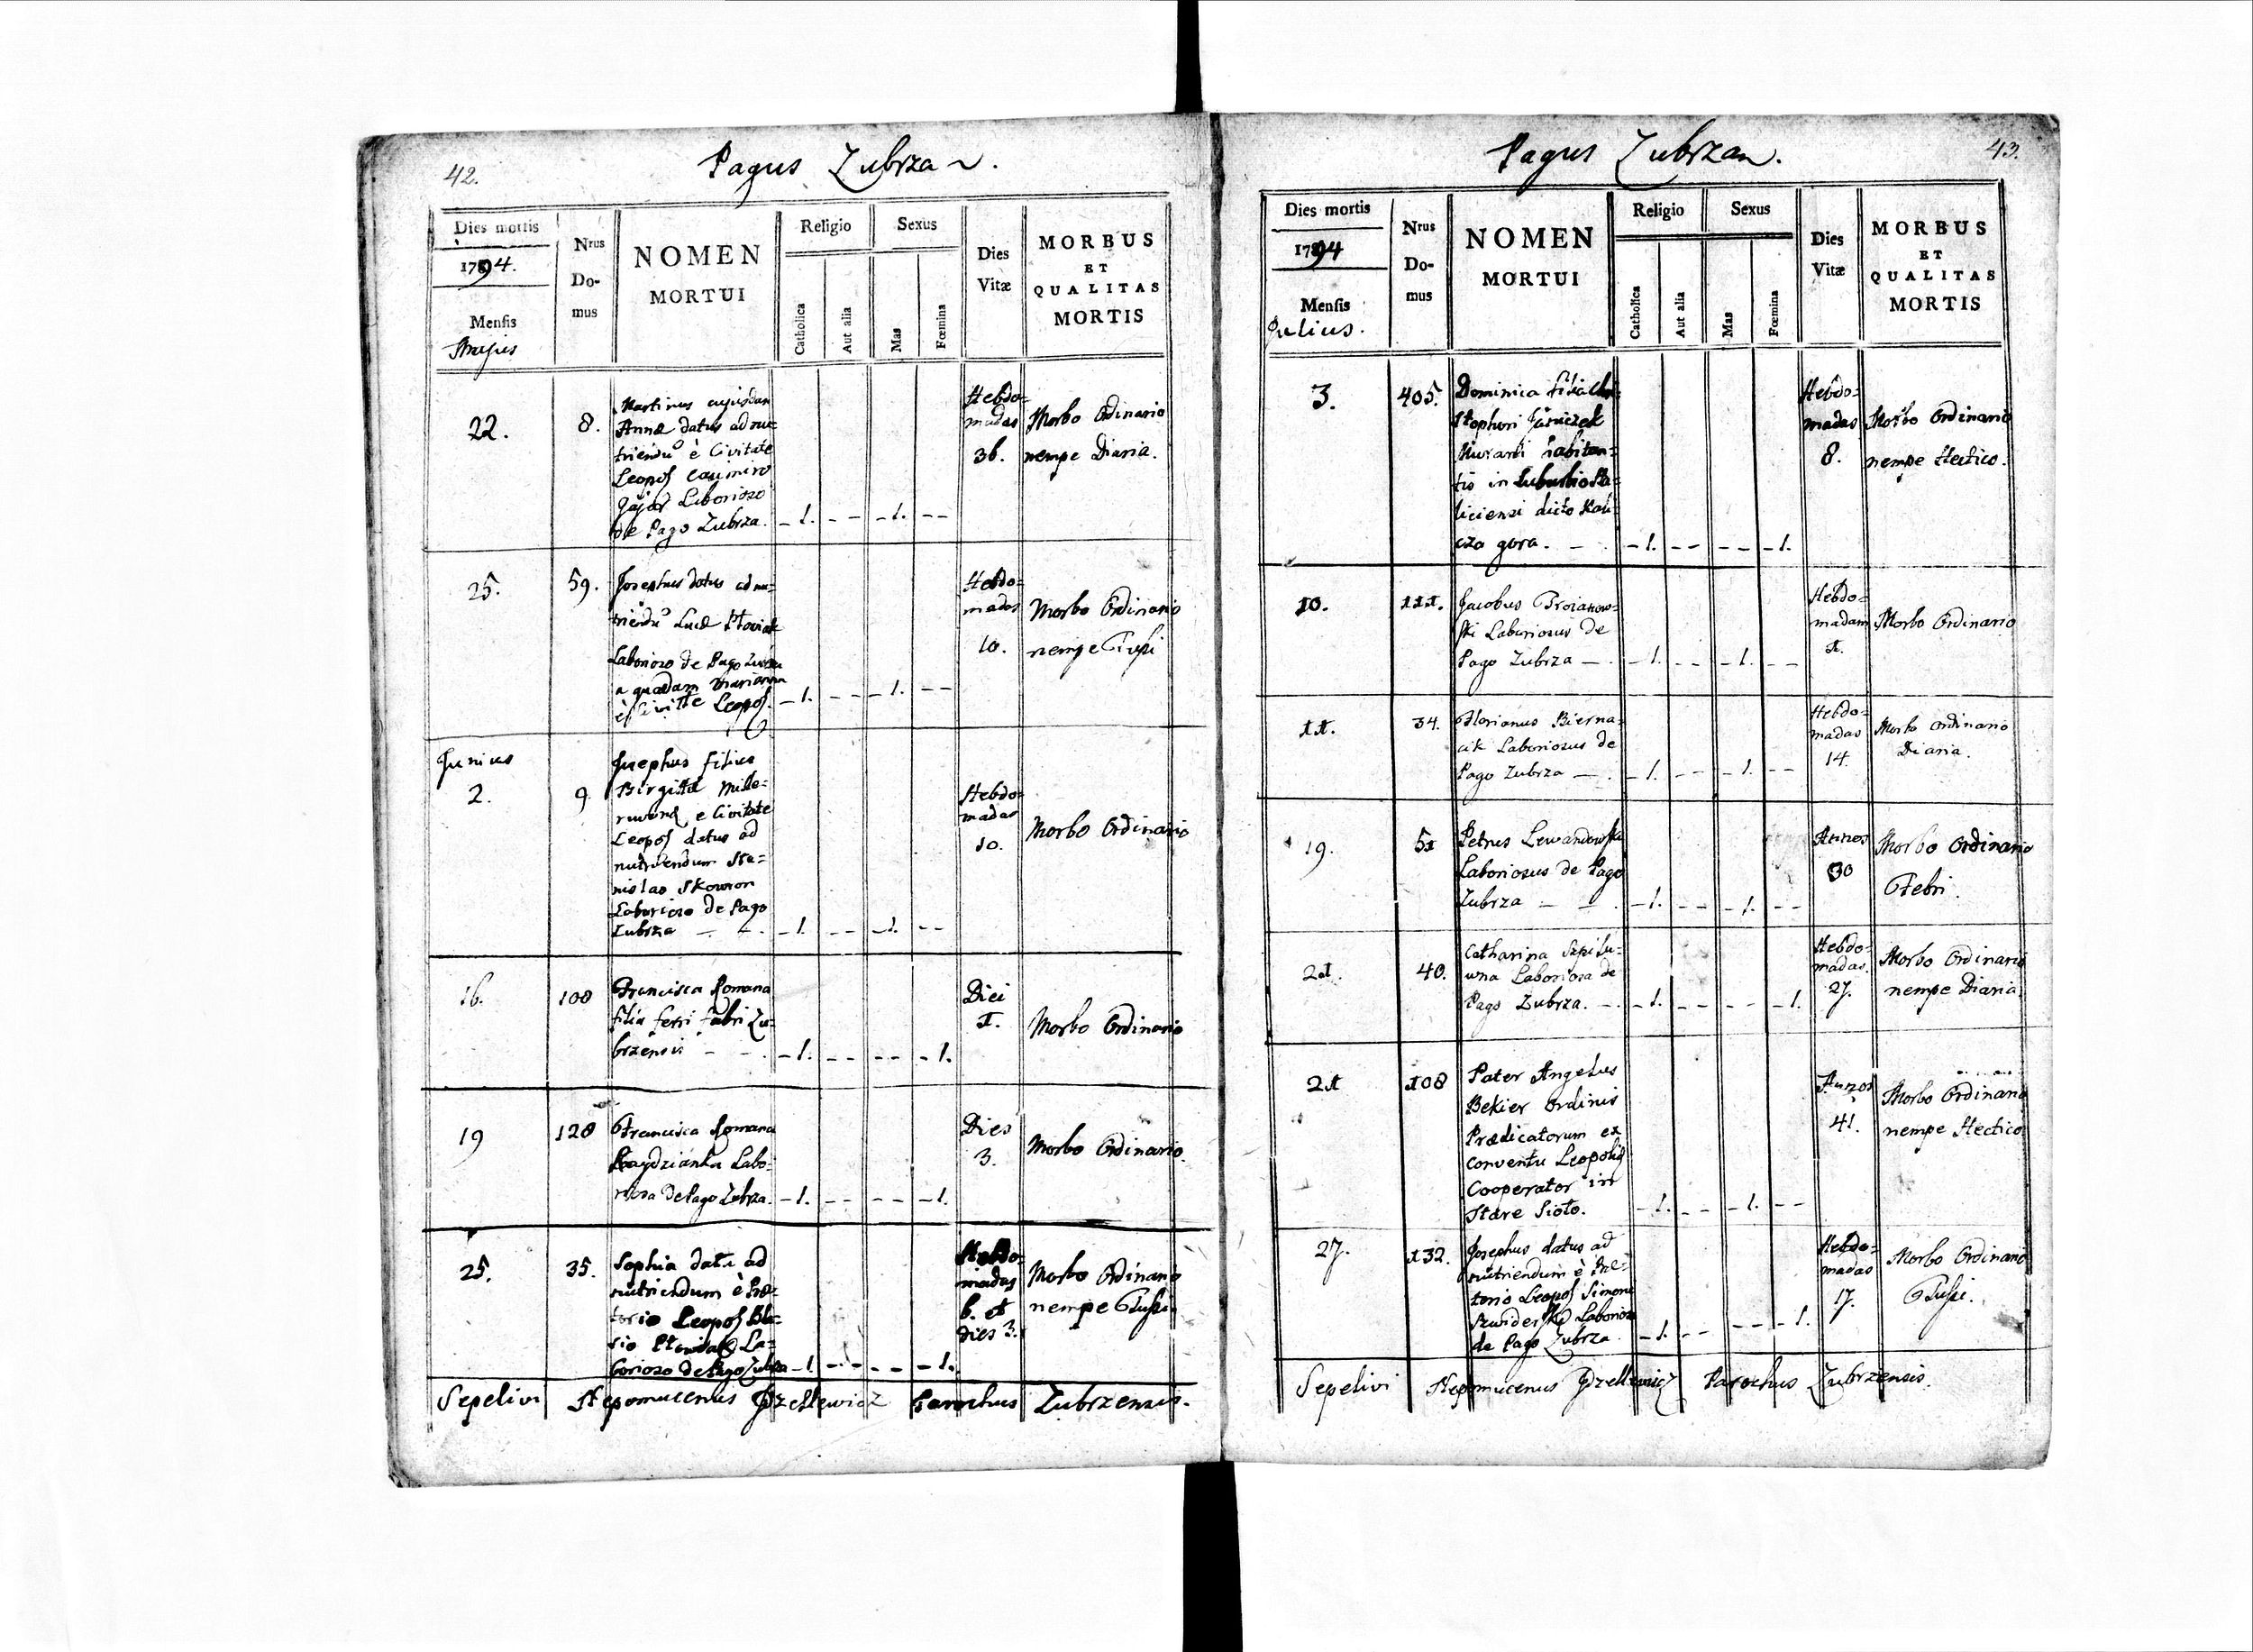 42.
Pagus Zubrza.
Dies mortis
1794.
Mensis
Majus
Nrus
Do-
mus
NOMEN
MORTUI
Religio
Catholica
Aut alia
Sexus
Mas
Fœmina
Dies
Vitæ
MORBUS
ET
QUALITAS
MORTIS
22.
8.
Martinus cujusdam
Annæ datus ad nu-
triendū è Civitate
Leopol Casimiro
Laborioso
de Pago Zubrza.
- 1. - - - 1. - -
Hebdo-
madas
36.
Morbo Ordinario
nempe Diaria.
25.
59.
Josephus datus ad nu-
triendū Lucæ
Laborioso de Pago Zubrza
a quadam Marianna
è Civitte Leopol.
- 1. - - - 1. - -
Hebdo-
madas
10.
Morbo Ordinario
nempe Tussi
Junius
2.
9.
Josephus filius
Birgittæ
e Civitate
Leopol datus ad
nutriendum Sta-
nislao Skowron
Laborioso de Pago
Zubrza - - .
- 1. - - - 1. - -
Hebdo-
madas
10.
Morbo Ordinario
16.
108
Francisca Romana
filia ferri fabri Zu-
brzensis - - .
- 1. - - - - - 1.
Diei
1.
Morbo Ordinario
19
128
Francisca Romana
Labo-
riosa de Pago Zubrza.
- 1. - - - - - 1.
Dies
3.
Morbo Ordinario.
25.
35.
Sophia data ad
nutriendum è Præ-
torio Leopol Bla-
sio La-
borioso de Pago Zubrza
- 1. - - - - - 1.
Hebdo-
madas
6. et
dies 3.
Morbo Ordinario
nempe Tussi.
Sepelivi Nepomucenus Parochus Zubrzensis.
43.
Pagus Zubrza.
Dies mortis
1794
Mensis
Julius.
Nrus
Do-
mus
NOMEN
MORTUI
Religio
Catholica
Aut alia
Sexus
Mas
Fœmina
Dies
Vitæ
MORBUS
ET
QUALITAS
MORTIS
3.
405.
Dominica filia Chri-
stophori
Murarii habitan-
tis in Suburbio Ha-
liciensi dicto Kali-
cza gora. - .
- 1. - - - - - 1.
Hebdo-
madas
8.
Morbo Ordinario
nempe Hectico.
10.
111.
Jacobus Troianow-
ski Laboriosus de
Pago Zubrza - .
- 1. - - - 1. - -
Hebdo-
madam
1.
Morbo Ordinario
11.
34.
Florianus Bierna-
cik Laboriosus de
Pago Zubrza - .
- 1. - - - 1. - -
Hebdo-
madas
14.
Morbo Ordinario
Diaria.
19.
51
Petrus Lewandowski
Laboriosus de Pago
Zubrza - - .
- 1. - - - 1. - -
Annos
30
Morbo Ordinario
Febri.
21.
40.
Catharina Szpilu-
wna Laboriosa de
Pago Zubrza. - .
- 1. - - - - - 1.
Hebdo-
madas.
27.
Morbo Ordinario
nempe Diaria.
21
108
Pater Angelus
Bekier Ordinis
Prædicatorum ex
Conventu Leopoli
Cooperator in
Stare Siolo.
- 1. - - - 1. - -
Annos
41.
Morbo Ordinario
nempe Hectico.
27.
132.
Josephus datus ad
nutriendum è Præ-
torio Leopol Simoni
Laborioso
de Pago Zubrza.
- 1. - - - - - 1.
Hebdo-
madas
17.
Morbo Ordinario
Tussi.
Sepelivi Nepomucenus Parochus Zubrzensis.